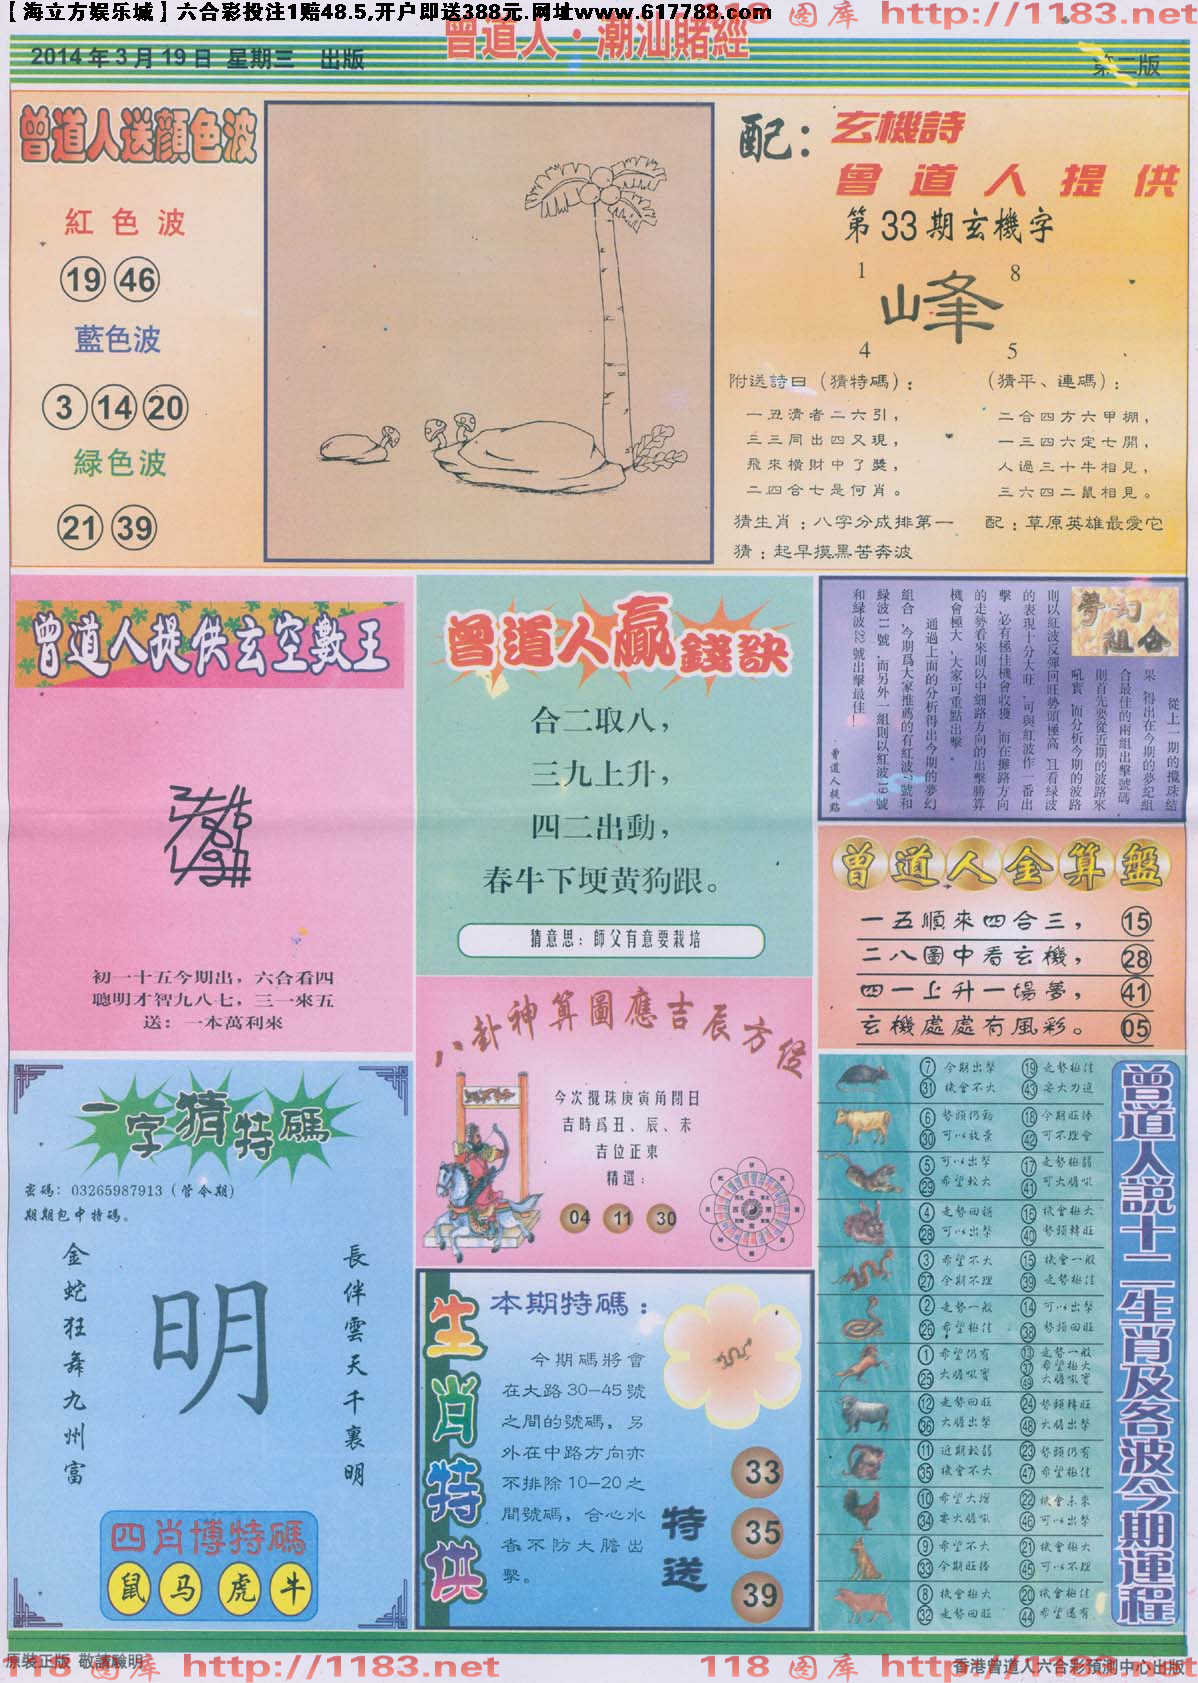 【海立方娱乐城】六合彩投注1赔48.5,开户即送388元.网址www.617788.com
118 图库 http://1183.net
曾道人·潮汕賭經
2014年3月19日 星期三 出版
第二版
曾道人送顏色波
紅色波
19 46
藍色波
3 14 20
緑色波
21 39
配：玄機詩
曾道人提供
第33期玄機字
1 8
峰
4 5
附送詩曰（猜特碼）：
一丑濟者二六引，
三三同出四又現，
飛來橫財中了獎，
二四合七是何肖。
（猜平、連碼）：
二合四方六甲棚，
一三四六定七開，
人過三十牛相見，
三六四二鼠相見。
猜生肖：八字分成排第一
配：草原英雄最愛它
猜：起早摸黑苦奔波
曾道人提供玄空數王
初一十五今期出，六合看四
聰明才智九八七，三一來五
送：一本萬利來
曾道人贏錢訣
合二取八，
三九上升，
四二出動，
春牛下埂黃狗跟。
猜意思：師父有意要栽培
夢幻
組合
從上一期的攪珠結
果，得出在今期的夢幻組
合最佳的兩組出擊號碼
則首先要從近期的波路來
吼實，而分析今期的波路
則以紅波反彈回旺勢頭極高，且看緑波
的表現十分大旺，可與紅波作一番出
擊，必有極佳機會收獲，而在攤路方向
的走勢看來則以中細路方向的出擊勝算
機會極大，大家可重點出擊。
通過上面的分析得出今期的夢幻
緑波11號，而另外一組則以紅波19號
和緑波22號出擊最佳！
曾道人提點
曾道人金算盤
一五順來四合三， 15
二八圖中看玄機， 28
四一上升一場夢， 41
玄機處處有風彩。 05
八卦神算圖應吉辰方位
今次攪珠庚寅角閉日
吉時爲丑、辰、未
吉位正東
精選：
04 11 30
一字猜特碼
密碼：03265987913（管令期）
期期包中特碼。
金蛇狂舞九州富
明
長伴雲天千裏明
四肖博特碼
鼠 马 虎 牛
生肖特供
本期特碼：
今期碼將會
在大路30—45號
之間的號碼，另
外在中路方向亦
不排除10—20之
間號碼，合心水
者不防大膽出
擊。
特送
33
35
39
曾道人說十二生肖及各波今期運程
7 今期出擊 19 走勢極佳
31 機會不大 43 要大力追
6 勢頭仍勁 18 今期旺勝
30 可以放棄 42 可不理會
5 可以出擊 17 走勢極弱
29 希望較大 41 可大膽吼
4 走勢回穩 16 機會極大
28 可以出擊 40 勢頭轉旺
3 希望不大 15 機會一般
27 今期不理 39 走勢極佳
2 走勢一般 14 可以出擊
26 希望極佳 38 勢頭回旺
1 希望仍有 13 走勢一般
37 希望極大
25 大膽吼實 49 大膽吼實
12 走勢回旺 24 勢頭轉旺
36 大膽出擊 48 大膽出擊
11 近期較弱 23 勢頭仍有
35 機會不大 47 希望極佳
10 希望大增 22 機會未來
34 要大膽吼 46 可以出擊
9 希望不大 21 機會極大
33 今期旺勝 45 可以不理
8 機會極大 20 機會極佳
32 走勢回旺 44 希望還有
原裝正版 敬請驗明
118 图库 http://1183.net
118 图库 http://1183.net
香港曾道人六合彩預測中心出版